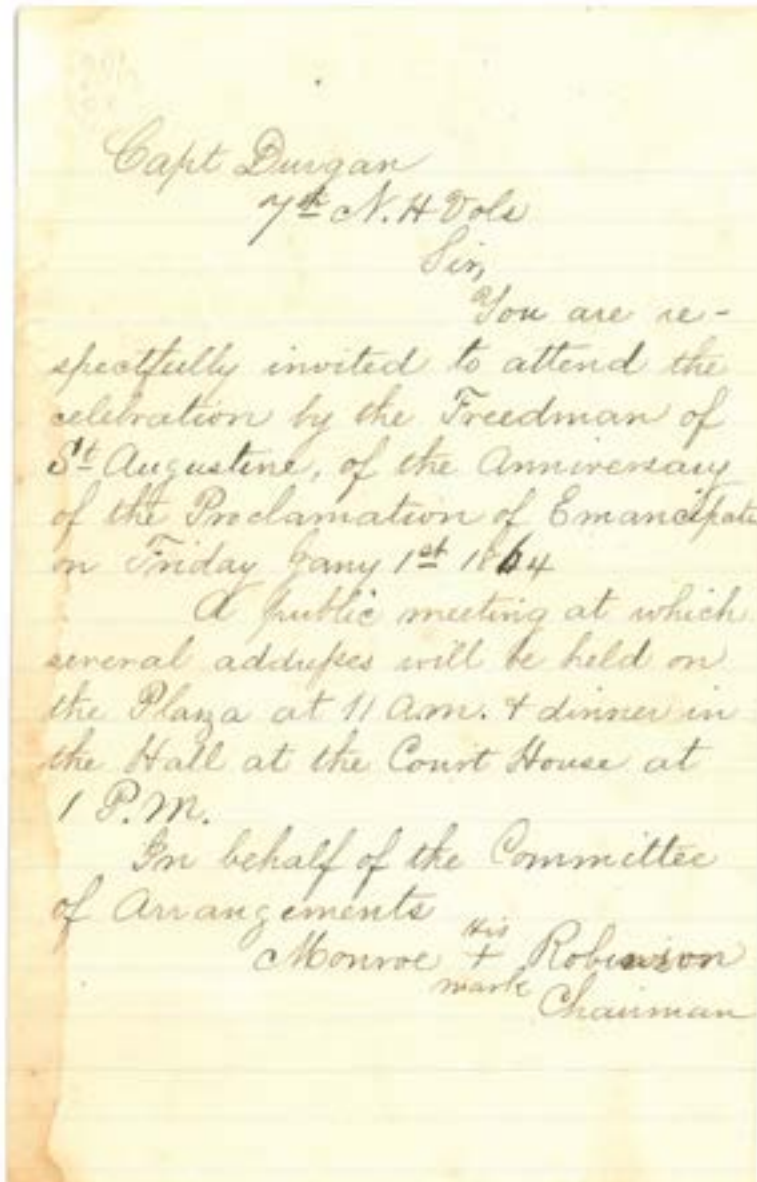 Capt Durgan
7th N. H Vols
Sir,
You are re-
spectfully invited to attend the
celebration by the Freedman of
St Augustine, of the Anniversary
of the Proclamation of Emancipati
on Friday Jany 1st 1864
A public meeting at which
several addresses will be held on
the Plaza at 11 a.m. & dinner in
the Hall at the Court House at
1 P.M.
In behalf of the Committee
of Arrangements
His
Monroe + Robinson
mark
Chairman